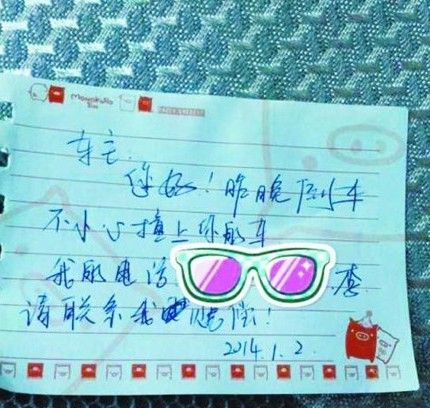 monokuro
Boo
车主.
你好！昨晚倒车
不小心撞上你的车
我的电话 李
请联系我 赔偿！
2014.1.2.